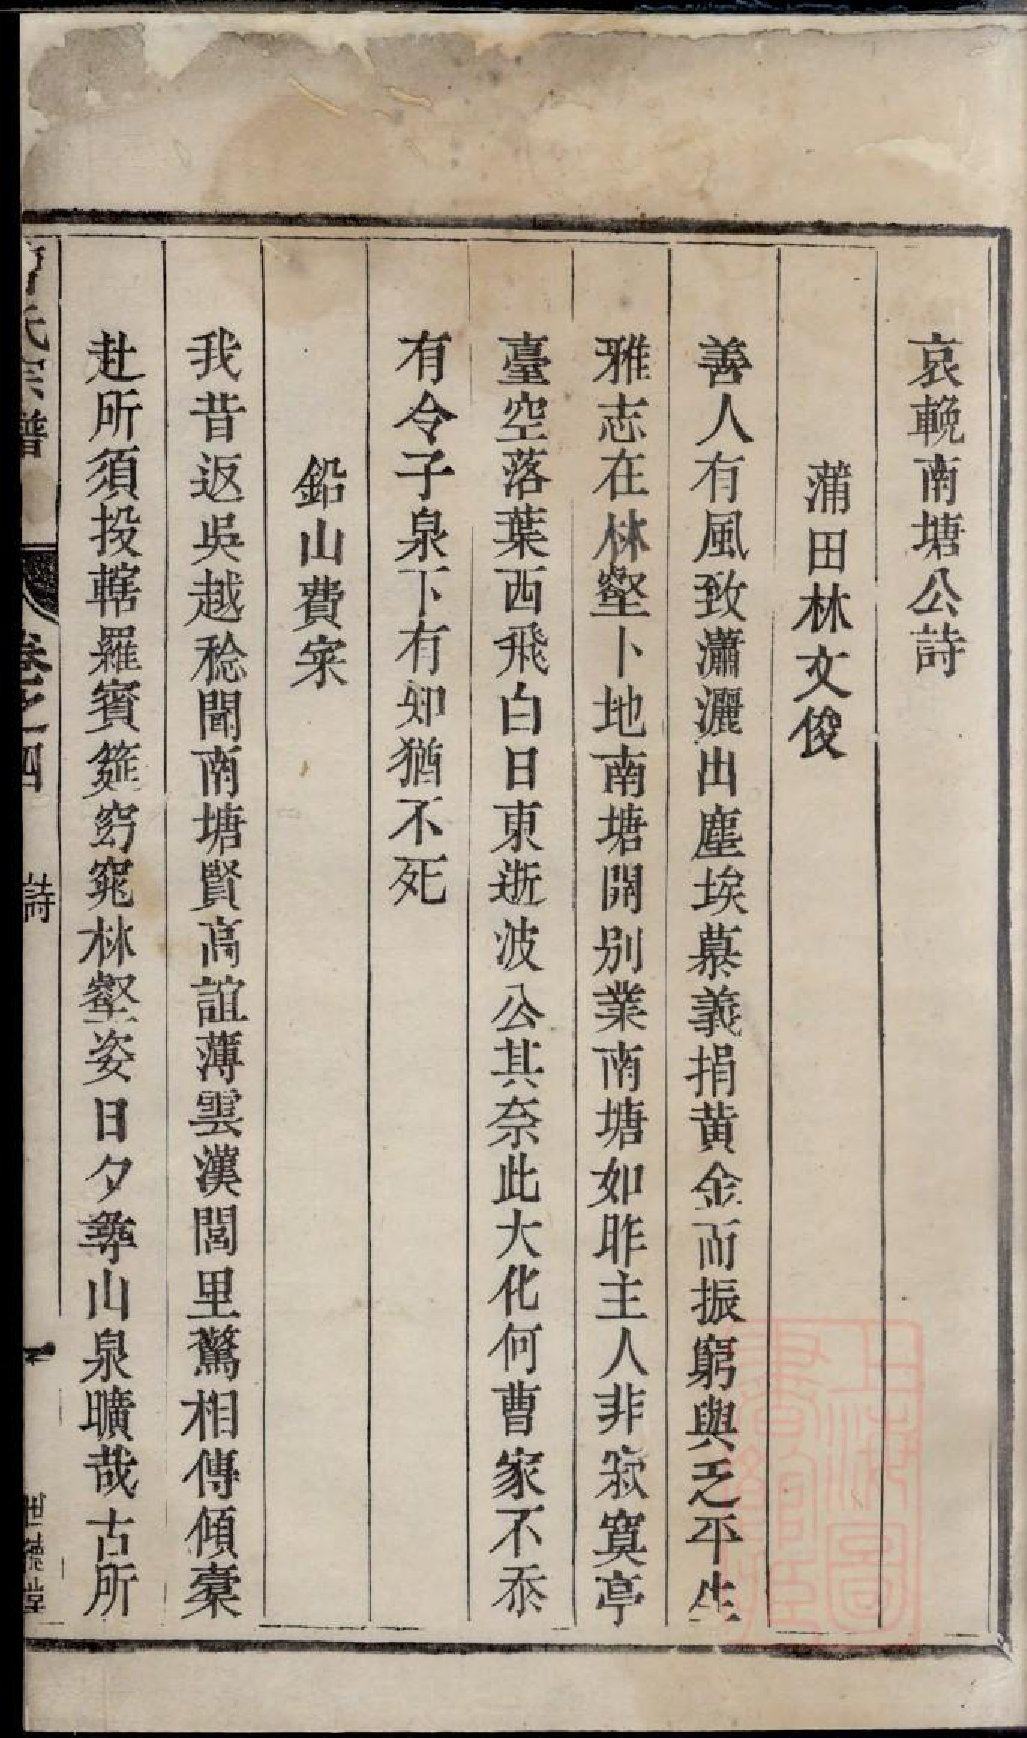 哀輓南塘公詩
蒲田林文俊
善人有風致瀟灑出塵埃慕義捐黃金而振窮與乏平生
雅志在林壑卜地南塘開別業南塘如昨主人非寂寞亭
臺空落葉西飛白日東逝波公其奈此大化何曹家不忝
有令子泉下有知猶不死
鉛山費寀
我昔返吳越稔聞南塘賢高誼薄雲漢閭里驚相傳傾橐
赴所須投轄羅賓筵窈窕林壑姿日夕尋山泉曠哉古所
氏宗譜
卷之四
詩
世德堂
上海圖書館藏